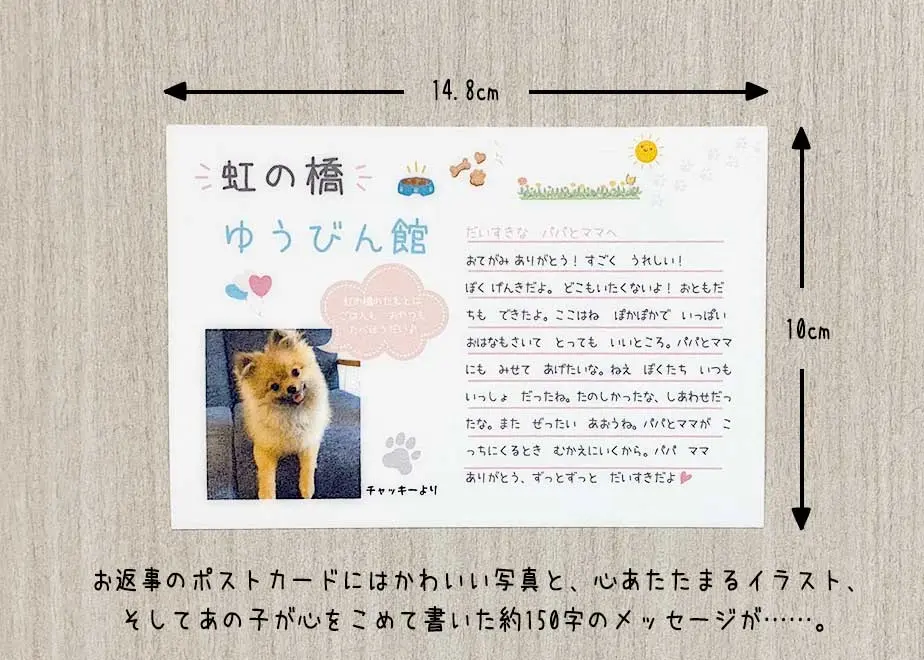 14.8cm
虹の橋
ゆうびん館
虹の橋のたもとは
ごはんも おやつも
たべほうだい♪
チャッキーより
だいすきな パパとママへ
おてがみ ありがとう! すごく うれしい!
ぼく げんきだよ。 どこもいたくないよ! おともだ
ちも できたよ。ここはね ぽかぽかで いっぱい
おはなもさいて とっても いいところ。パパとママ
にも みせて あげたいな。ねえ ぼくたち いつも
いっしょ だったね。たのしかったな、しあわせだっ
たな。また ぜったい あおうね。パパとママが こ
っちにくるとき むかえにいくから。パパ ママ
ありがとう、ずっとずっと だいすきだよ
10cm
お返事のポストカードにはかわいい写真と、心あたたまるイラスト、
そしてあの子が心をこめて書いた約150字のメッセージが……。